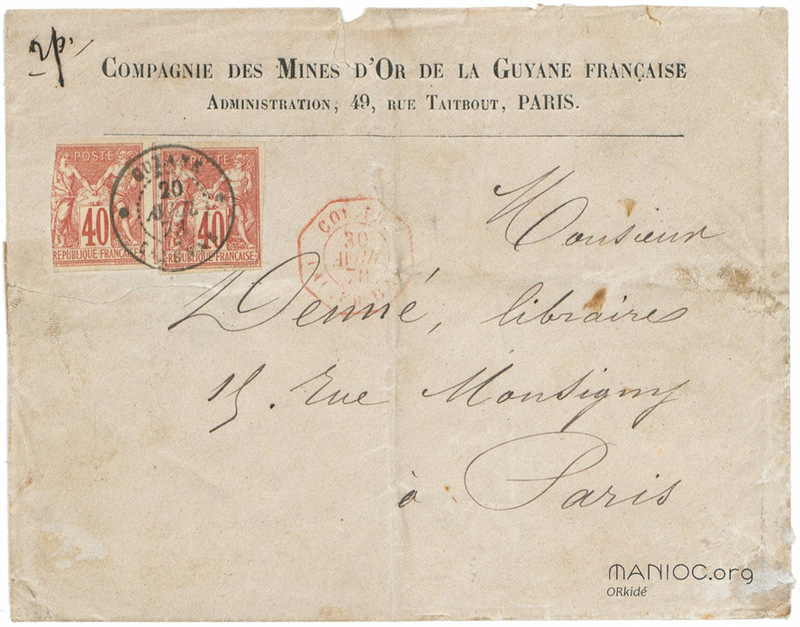 2p.
COMPAGNIE DES MINES D'OR DE LA GUYANE FRANÇAISE
ADMINISTRATION, 49, RUE TAITBOUT, PARIS.
POSTES
40
REPUBLIQUE FRANÇAISE
POSTES
40
REPUBLIQUE FRANÇAISE
GUYANE
20
78
COL.
30
78
Monsieur
Denné, libraire
15. Rue Monsigny
à Paris
MANIOC.org
ORkidé